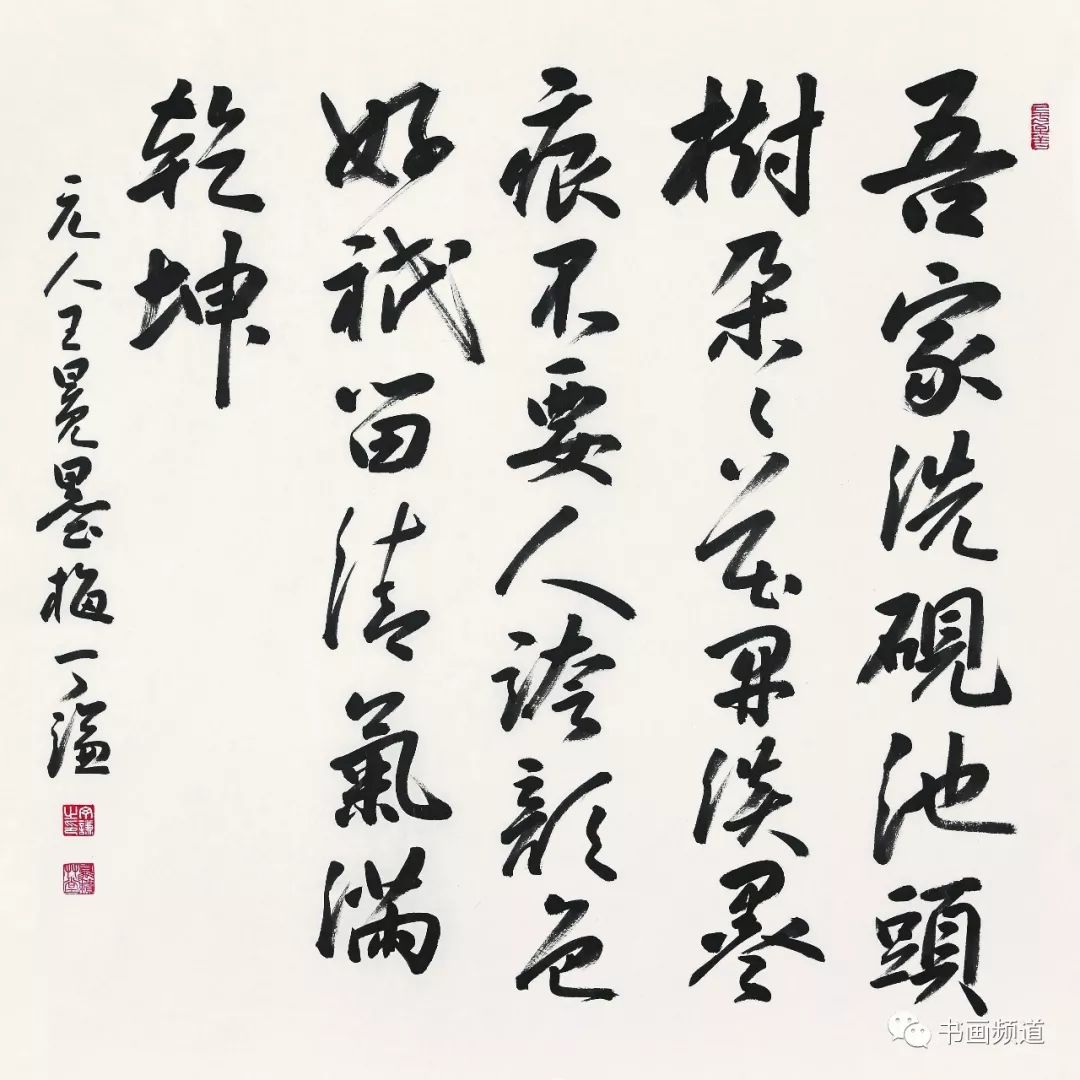 吾家洗硯池頭
樹朵々花開淡墨
痕不要人誇顏色
好祇留清氣滿
乾坤
元人王冕墨梅
书画频道